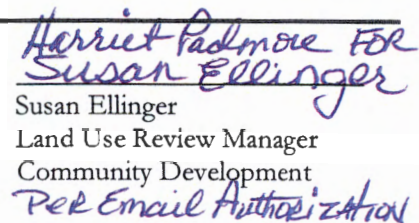 Harriet Padmore FOR
Susan Ellinger
Susan Ellinger
Land Use Review Manager
Community Development
Per Email Authorization